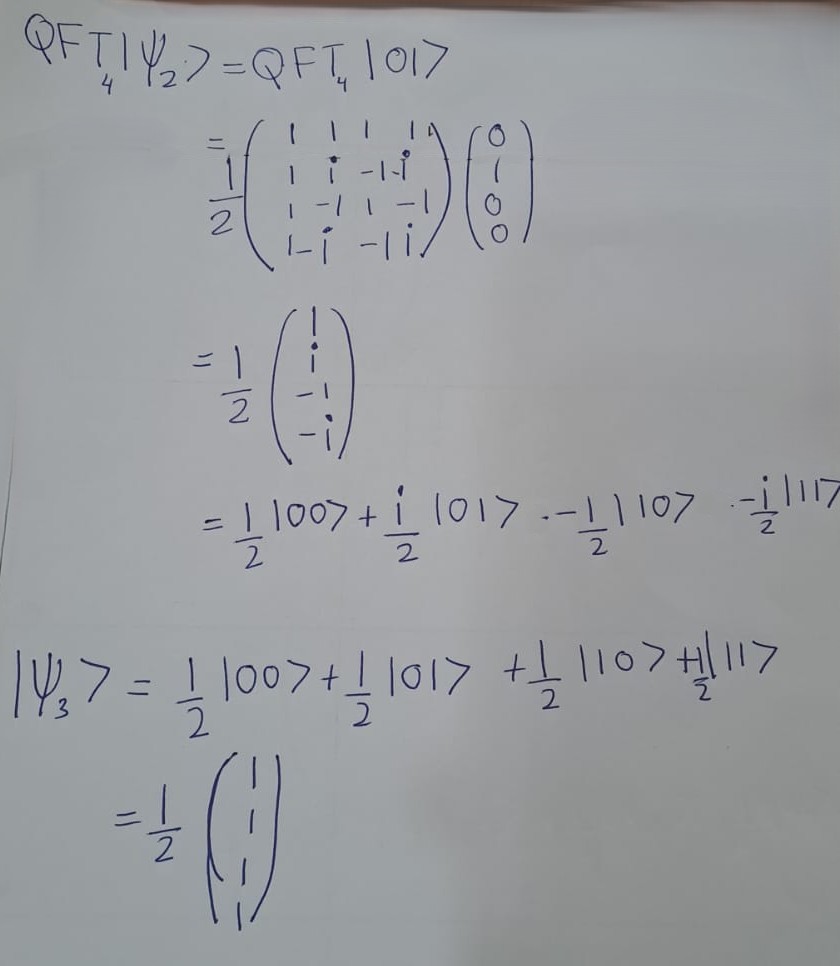 QFT₄|ψ₂> = QFT₄ |01>
= 1/2 ( 1 1 1 1 ; 1 i -1 -i ; 1 -1 1 -1 ; 1 -i -1 i ) ( 0 ; 1 ; 0 ; 0 )
= 1/2 ( 1 ; i ; -1 ; -i )
= 1/2 |00> + i/2 |01> - 1/2 |10> - i/2 |11>
|ψ₃> = 1/2 |00> + 1/2 |01> + 1/2 |10> + 1/2 |11>
= 1/2 ( 1 ; 1 ; 1 ; 1 )